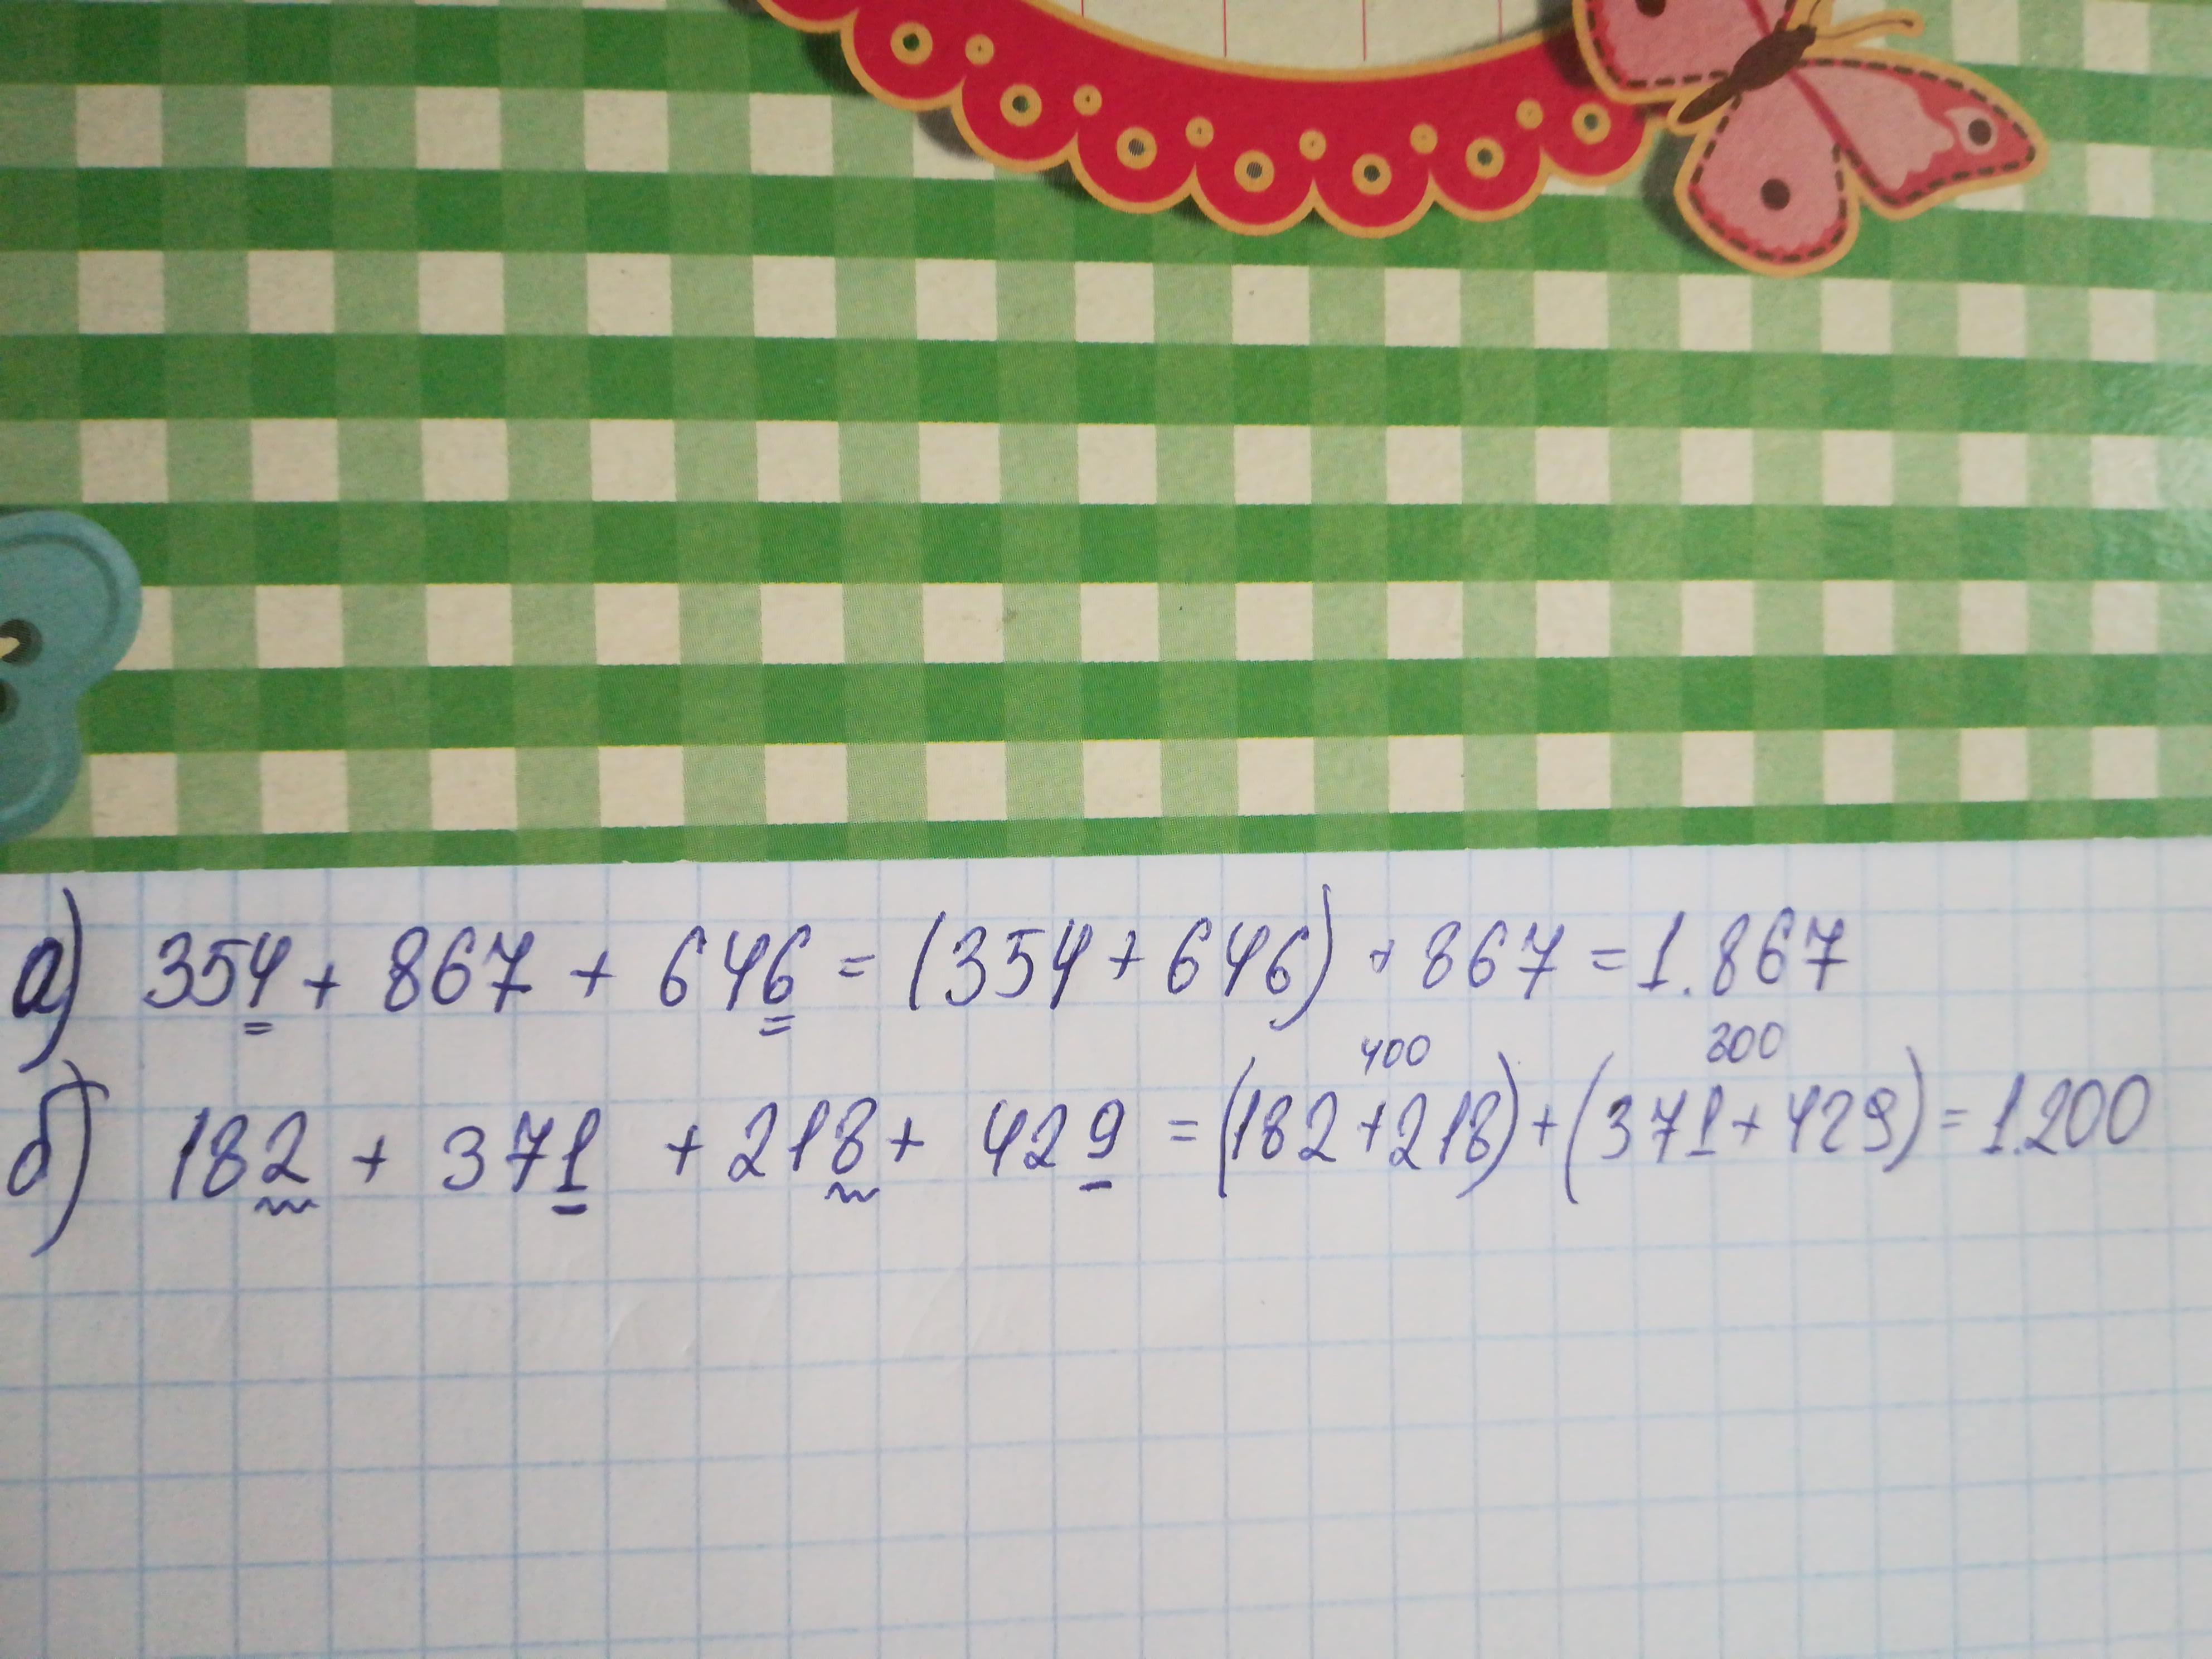 а) 354 + 867 + 646 = (354 + 646) + 867 = 1.867
400 800
б) 182 + 371 + 218 + 429 = (182 + 218) + (371 + 429) = 1.200